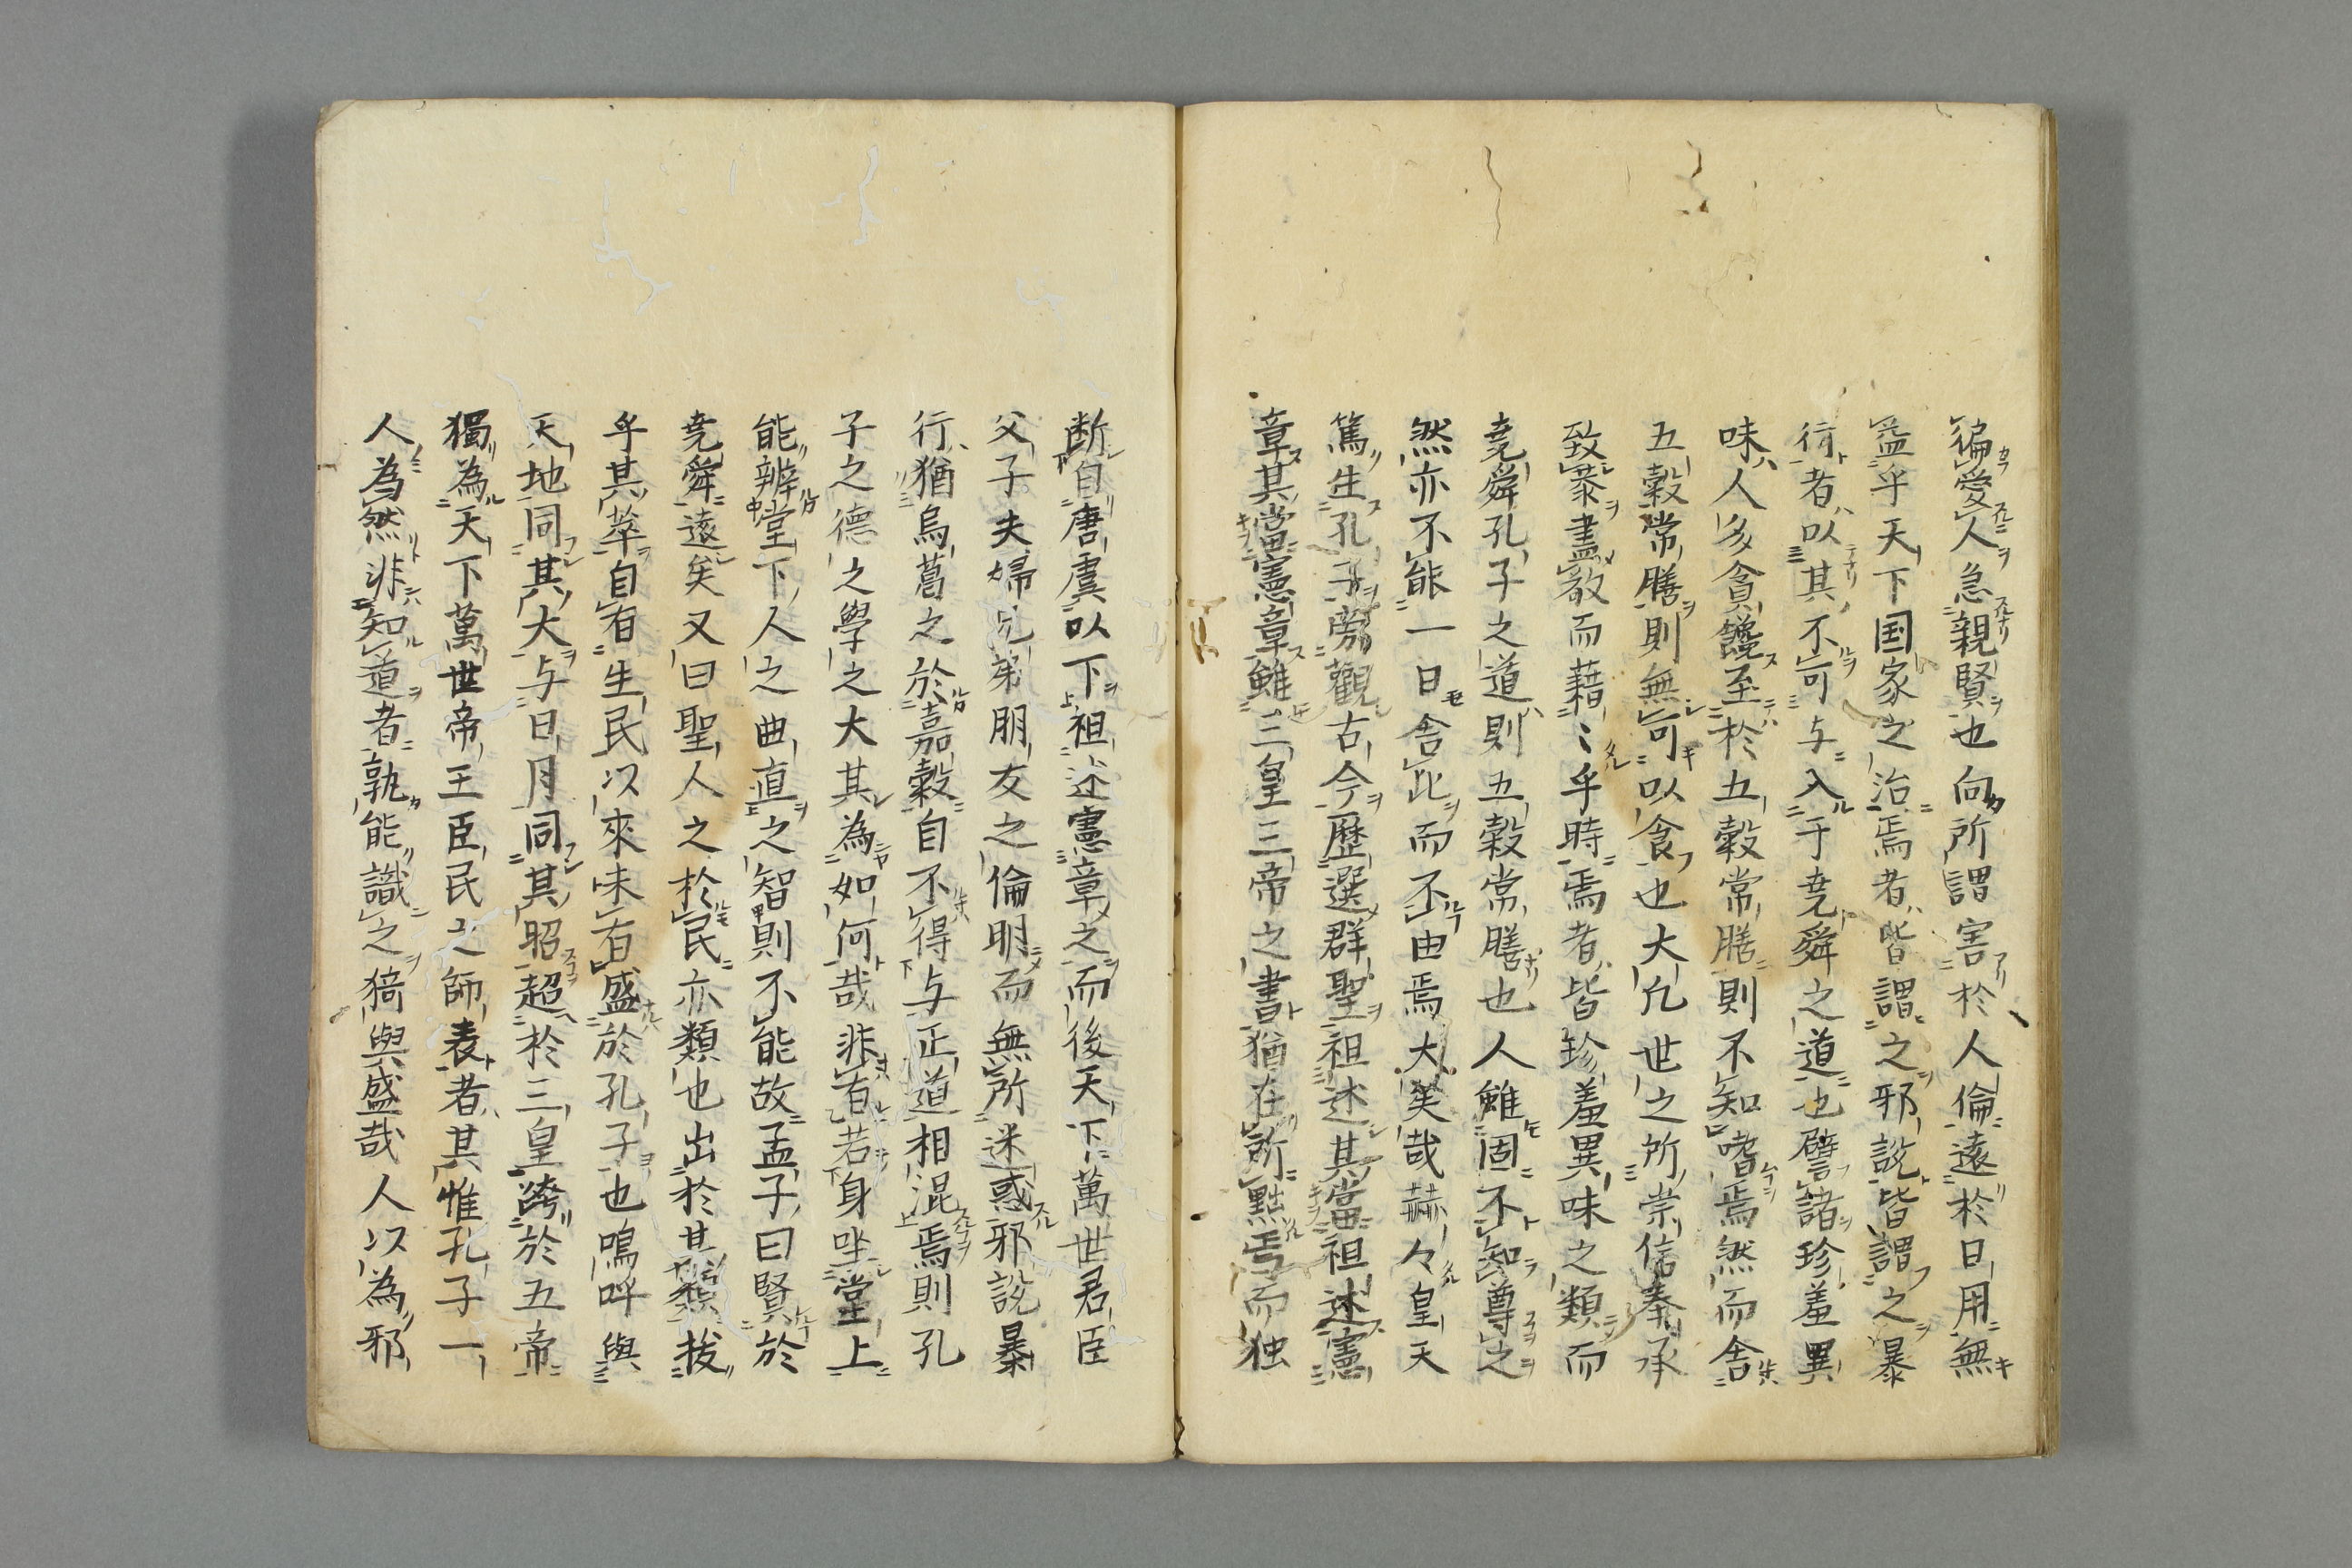 徧愛人急親賢也向所謂害於人倫遠於日用無
益乎天下国家之治焉者皆謂之邪説皆謂之暴
行者以其不可与入于尭舜之道也譬諸珍羞異
味人多貪饞至於五穀常膳則不知嗜焉然而舎
五穀常膳則無可以食也大凢世之所崇信奉承
致恭盡敬而藉〻乎時焉者皆珍羞異味之類而
尭舜孔子之道則五穀常膳也人雖固不知尊之
然亦不能一日舎此而不由焉大矣哉赫々皇天
篤生孔子旁觀古今歴選群聖祖述其當祖述憲
章其當憲章雖三皇三帝之書猶在所黜焉而独
断自唐虞以下祖述憲章之而後天下萬世君臣
父子夫婦兄弟朋友之倫明而無所迷惑邪説暴
行猶烏喙之於嘉穀自不得与正道相混焉則孔
子之德之學之大其為如何哉非有若身坐堂上
能辨堂下人之曲直之智則不能故孟子曰賢於
尭舜遠矣又曰聖人之於民亦類也出於其類拔
乎其萃自有生民以來未有盛於孔子也嗚呼與
天地同其大与日月同其昭超於三皇跨於五帝
獨為天下萬世帝王臣民之師表者其惟孔子一
人為然非知道者孰能識之猗與盛哉人以為邪